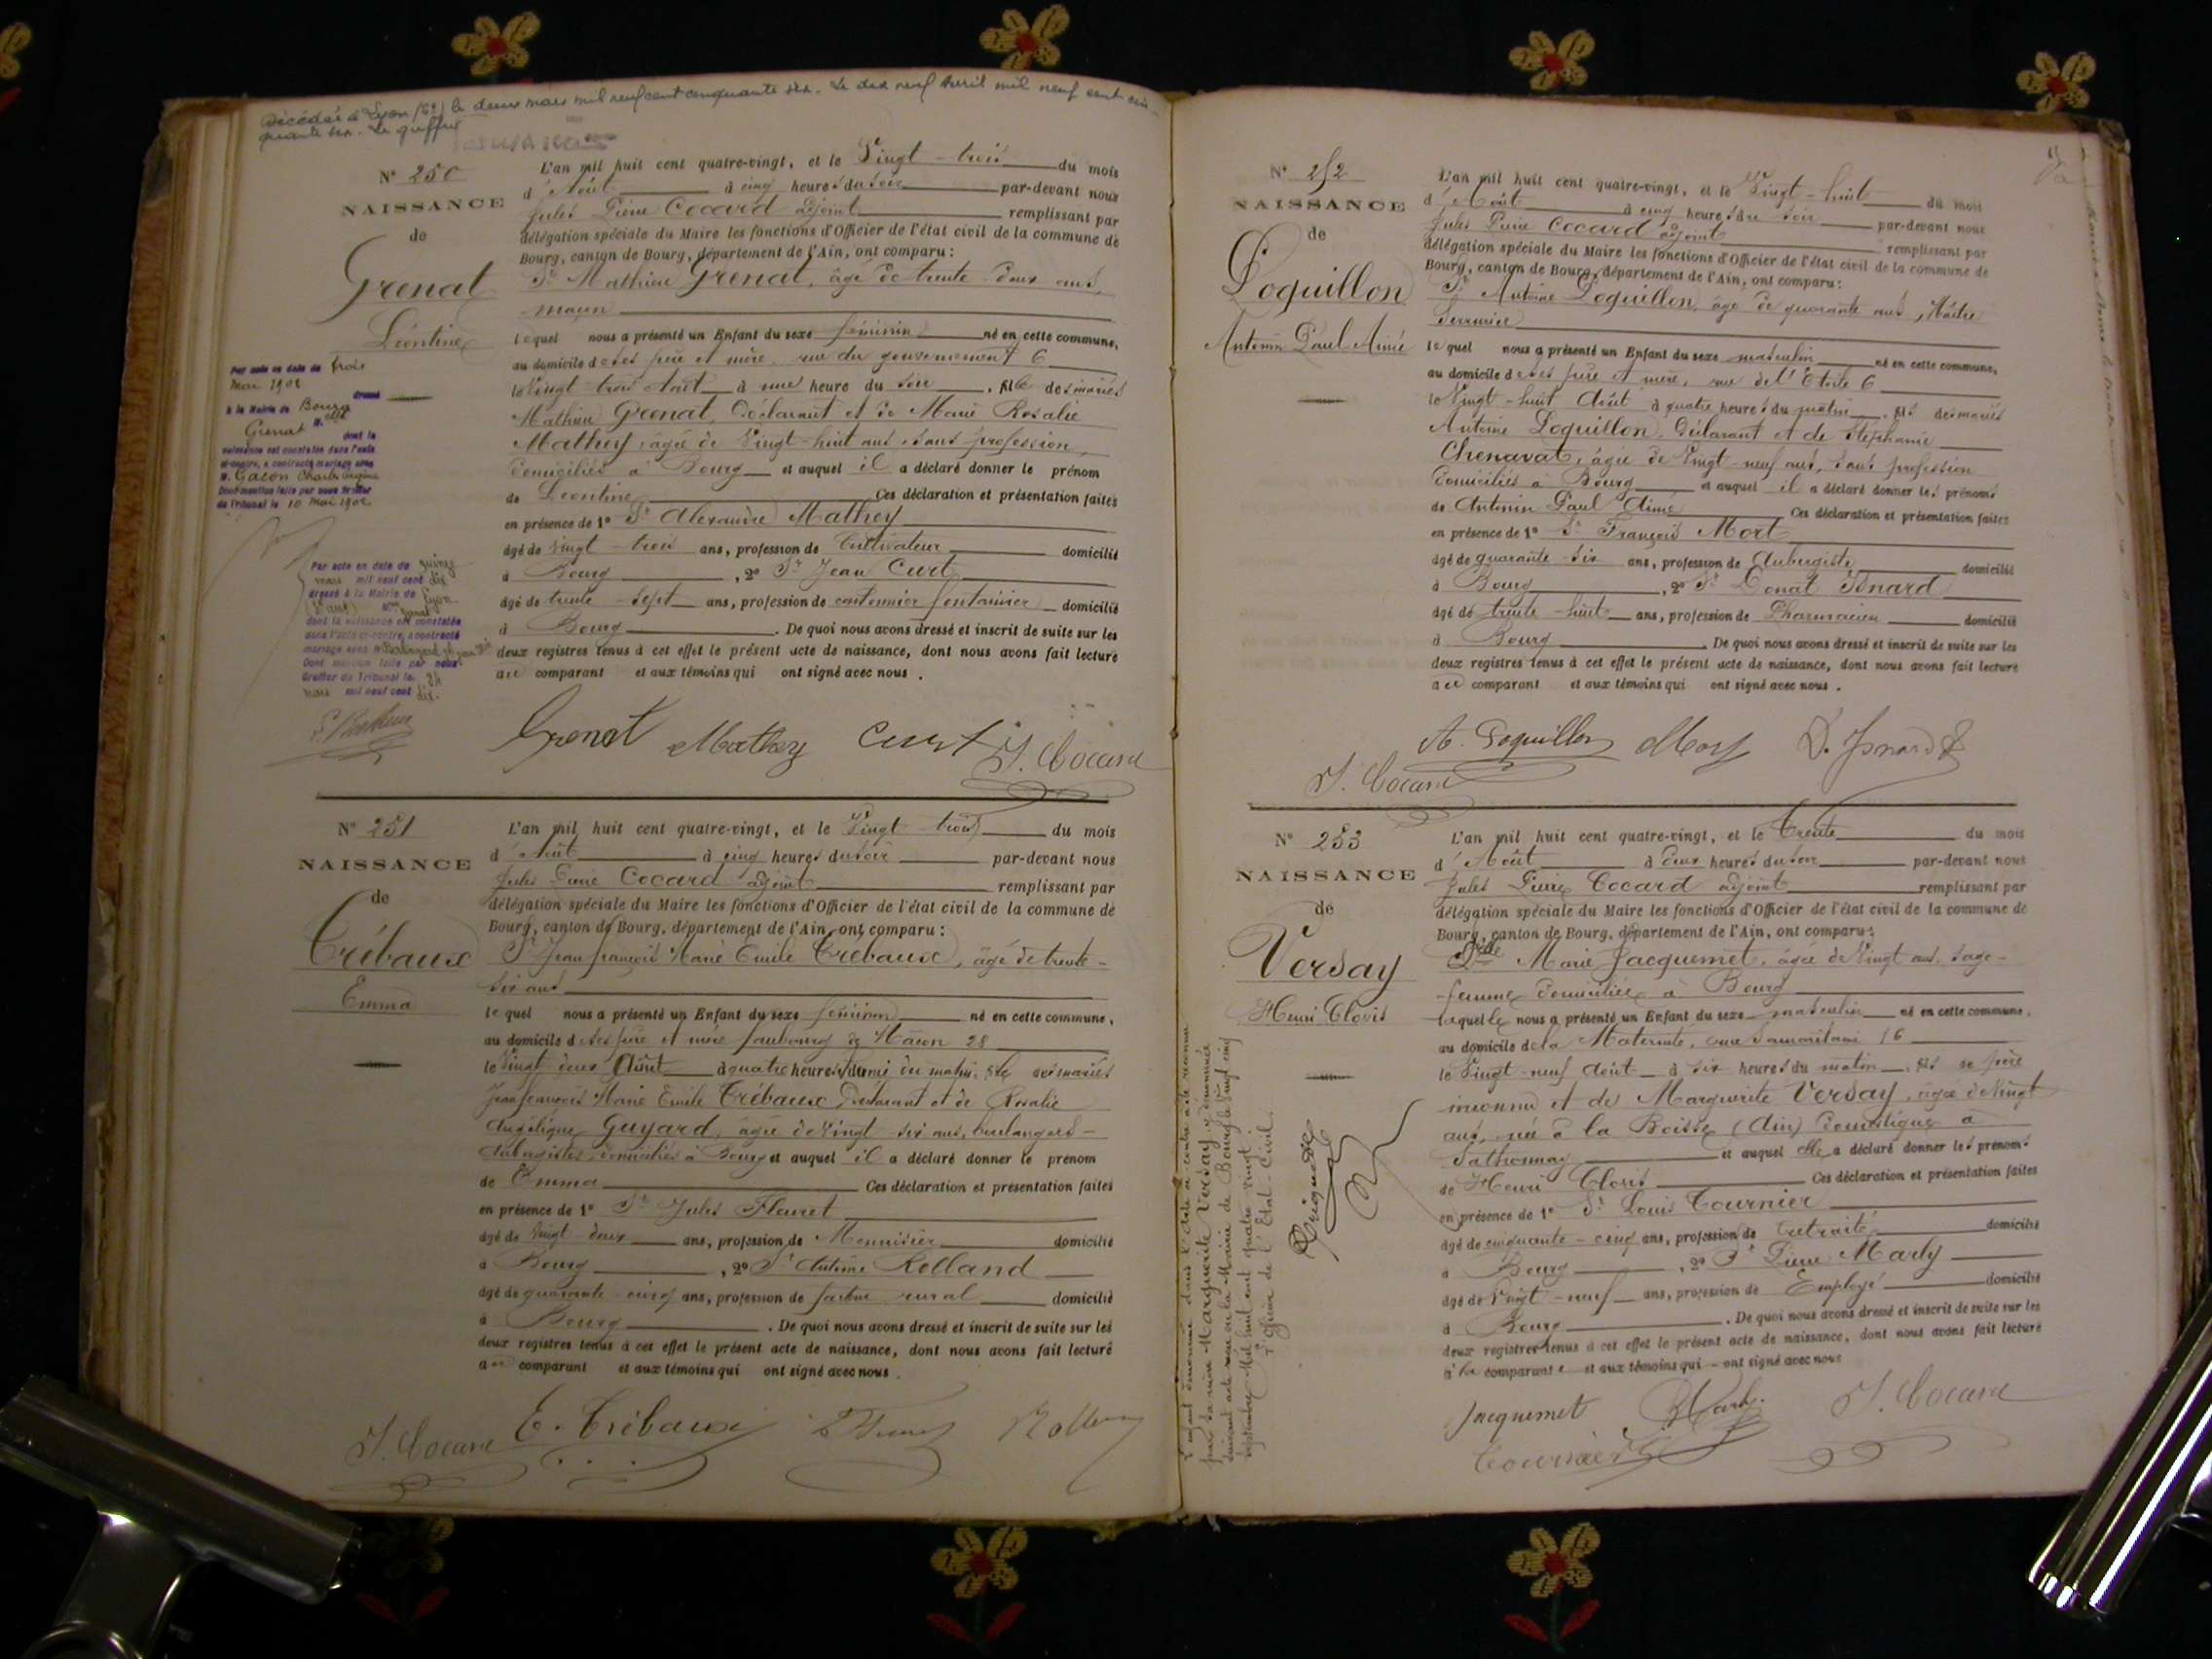 Décédée à Lyon (6e) le deux mars mil neuf cent cinquante six. Le dix neuf avril mil neuf cent cin-
quante six. Le greffier
N° 250
NAISSANCE
de
Grenat
Léontine
Par acte en date du trois
mai 1902
dressé
à la Mairie de Bourg
Grenat
dont la
naissance est constatée dans l'acte
ci-contre, a contracté mariage avec
M. Gacon Charles
Dont mention faite par nous Greffier
du Tribunal le 10 Mai 1902
Par acte en date du quinze
mars mil neuf cent dix
dressé à la Mairie de Lyon
dont la naissance est constatée
dans l'acte ci-contre, a contracté
mariage avec
Dont mention faite par nous
Greffier du Tribunal le 24
mars mil neuf cent dix.
L'an mil huit cent quatre-vingt, et le Vingt-trois du mois
d'Août à cinq heures du soir par-devant nous
Jules Pierre Cocard adjoint remplissant par
délégation spéciale du Maire les fonctions d'Officier de l'état civil de la commune de
Bourg, canton de Bourg, département de l'Ain, ont comparu:
Sr Mathieu Grenat, âgé de trente-deux ans,
maçon
lequel nous a présenté un Enfant du sexe féminin né en cette commune,
au domicile de ses père et mère, rue du gouvernement 6
le Vingt-trois Août à une heure du soir, fille des mariés
Mathieu Grenat, Déclarant et de Marie Rosalie
Mathey, âgée de Vingt-huit ans, sans profession,
domiciliés à Bourg et auquel il a déclaré donner le prénom
de Léontine Ces déclaration et présentation faites
en présence de 1° Sr Alexandre Mathey
âgé de vingt-trois ans, profession de Cultivateur domicilié
à Bourg, 2° Sr Jean Curt
âgé de trente-sept ans, profession de cantonnier fontainier domicilié
à Bourg. De quoi nous avons dressé et inscrit de suite sur les
deux registres tenus à cet effet le présent acte de naissance, dont nous avons fait lecture
au comparant et aux témoins qui ont signé avec nous.
Grenat Mathey Curt J. Cocard
N° 251
NAISSANCE
de
Trébaux
Emma
L'an mil huit cent quatre-vingt, et le Vingt-trois du mois
d'Août à cinq heures du soir par-devant nous
Jules Pierre Cocard adjoint remplissant par
délégation spéciale du Maire les fonctions d'Officier de l'état civil de la commune de
Bourg, canton de Bourg, département de l'Ain, ont comparu:
Sr Jean François Marie Emile Trébaux, âgé de trente-
six ans
lequel nous a présenté un Enfant du sexe féminin né en cette commune,
au domicile de ses père et mère faubourg de Mâcon 28
le Vingt-deux Août à quatre heures demi du matin, fille des mariés
Jean François Marie Emile Trébaux Déclarant et de Rosalie
Angélique Guyard, âgée de Vingt-six ans, boulangers-
Aubergistes domiciliés à Bourg et auquel il a déclaré donner le prénom
de Emma Ces déclaration et présentation faites
en présence de 1° Sr Jules Fleuret
âgé de vingt-deux ans, profession de Menuisier domicilié
à Bourg, 2° Sr Antoine Rolland
âgé de quarante-cinq ans, profession de facteur rural domicilié
à Bourg. De quoi nous avons dressé et inscrit de suite sur les
deux registres tenus à cet effet le présent acte de naissance, dont nous avons fait lecture
au comparant et aux témoins qui ont signé avec nous.
J. Cocard E. Trébaux
N° 252
NAISSANCE
de
Poquillon
Antonin Paul Aimé
L'an mil huit cent quatre-vingt, et le Vingt-huit du mois
d'Août à cinq heures du soir par-devant nous
Jules Pierre Cocard adjoint remplissant par
délégation spéciale du Maire les fonctions d'Officier de l'état civil de la commune de
Bourg, canton de Bourg, département de l'Ain, ont comparu:
Sr Antoine Poquillon, âgé de quarante ans, Maître
Serrurier
lequel nous a présenté un Enfant du sexe masculin né en cette commune,
au domicile de ses père et mère, rue de l'Etoile 6
le Vingt-huit Août à quatre heures du matin, fils des mariés
Antoine Poquillon, Déclarant et de Stéphanie
Chenavat, âgée de Vingt-neuf ans, sans profession
domiciliés à Bourg et auquel il a déclaré donner les prénoms
de Antonin Paul Aimé Ces déclaration et présentation faites
en présence de 1° Sr François Mort
âgé de quarante-six ans, profession de Aubergiste domicilié
à Bourg, 2° Sr Donat Isnard
âgé de trente-huit ans, profession de Pharmacien domicilié
à Bourg. De quoi nous avons dressé et inscrit de suite sur les
deux registres tenus à cet effet le présent acte de naissance, dont nous avons fait lecture
au comparant et aux témoins qui ont signé avec nous.
A. Poquillon Mort D. Isnard
J. Cocard
N° 253
NAISSANCE
de
Versay
Henri Clovis
L'enfant dénommé dans l'acte ci-contre a été reconnu
par sa mère Marguerite Versay y dénommée
suivant acte reçu à la Mairie de Bourg le vingt cinq
septembre Mil huit cent quatre-vingt.
l'Officier de l'Etat-Civil.
L'an mil huit cent quatre-vingt, et le Trente du mois
d'Août à deux heures du soir par-devant nous
Jules Pierre Cocard adjoint remplissant par
délégation spéciale du Maire les fonctions d'Officier de l'état civil de la commune de
Bourg, canton de Bourg, département de l'Ain, ont comparu:
Delle Marie Jacquemet, âgée de Vingt ans, sage-
femme domiciliée à Bourg
laquelle nous a présenté un Enfant du sexe masculin né en cette commune,
au domicile de la Maternité, rue Samaritaine 16
le Vingt-neuf Août à six heures du matin, fils de père
inconnu et de Marguerite Versay, âgée de Vingt
ans, née à la Boisse (Ain) domestique à
Sathonnay et auquel elle a déclaré donner les prénoms
de Henri Clovis Ces déclaration et présentation faites
en présence de 1° Sr Louis Tournier
âgé de cinquante-cinq ans, profession de retraité domicilié
à Bourg, 2° Sr Pierre Marly
âgé de Vingt-neuf ans, profession de Employé domicilié
à Bourg. De quoi nous avons dressé et inscrit de suite sur les
deux registres tenus à cet effet le présent acte de naissance, dont nous avons fait lecture
à la comparante et aux témoins qui ont signé avec nous
Jacquemet Marly J. Cocard
Tournier